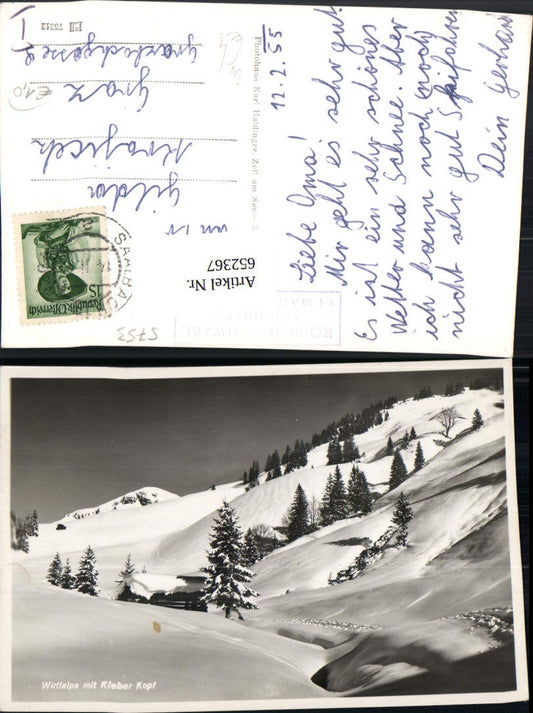 12.2.55
Liebe Oma!
Mir geht es sehr gut
Es ist ein sehr schönes
Wetter und Schnee. Aber
ich kann noch (noch)
nicht sehr gut Skifahren
Dein Gerhard
Photohaus Karl Haidinger Zell am See
an
Gilda
Graz
I
75312
€1,0
SAALBACH
1S
Republik Österreich
Artikel Nr.
652367
5753
Wirtlalpe mit Kleber Kopf